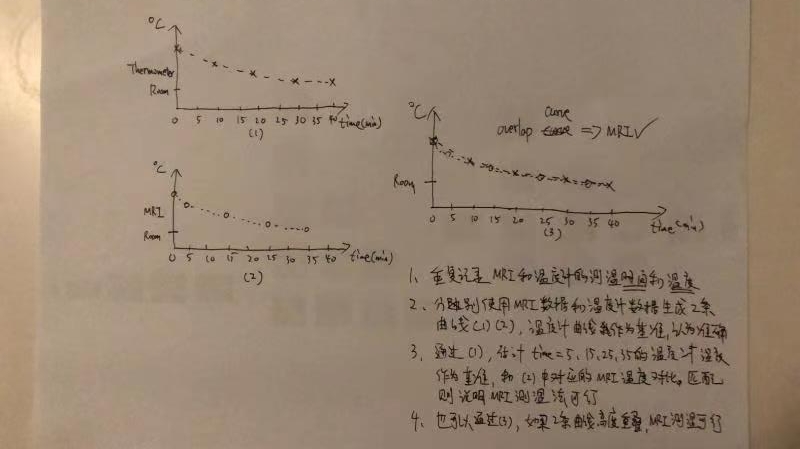 °C
Thermometer
Room
0 5 10 15 20 25 30 35 40 time(min)
(1)
°C
MRI
Room
0 5 10 15 20 25 30 35 40 time(min)
(2)
°C
curve
overlap => MRI✓
Room
0 5 10 15 20 25 30 35 40 time(min)
(3)
1、重复记录MRI和温度计的测温时间和温度
2、分别使用MRI数据和温度计数据生成2条
曲线(1)(2),温度计曲线作为基准,认为准确
3、通过(1),估计time=5,15,25,35的温度计温度
作为基准,和(2)中对应的MRI温度对比。匹配
则说明MRI测温法可行
4、也可以通过(3),如果2条曲线高度重叠,MRI测温可行